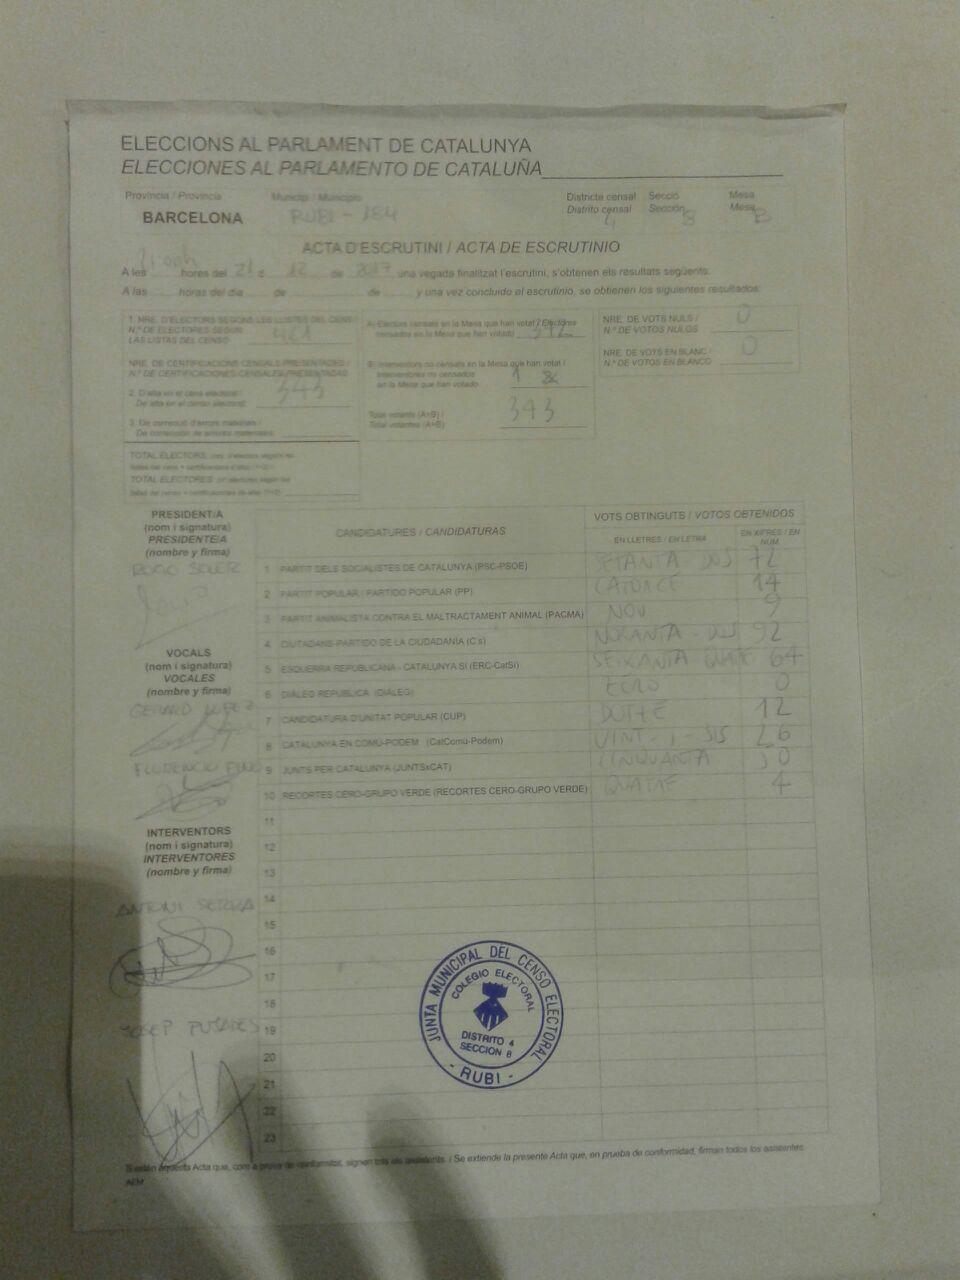 ELECCIONS AL PARLAMENT DE CATALUNYA
ELECCIONES AL PARLAMENTO DE CATALUÑA
Província / Provincia
Municipi / Municipio
Districte censal
Distrito censal
Secció
Sección
Mesa
Mesa
BARCELONA
RUBI - 184
4
8
B
ACTA D'ESCRUTINI / ACTA DE ESCRUTINIO
A les hores del 21 d 12 de 2017 una vegada finalitzat l'escrutini, s'obtenen els resultats següents:
A las horas del día de de y una vez concluido el escrutinio, se obtienen los siguientes resultados:
1. NRE. D'ELECTORS SEGONS LES LLISTES DEL CENS /
N.º DE ELECTORES SEGÚN
LAS LISTAS DEL CENSO 461
NRE. DE CERTIFICACIONS CENSALS PRESENTADES /
N.º DE CERTIFICACIONES CENSALES PRESENTADAS
2. D'alta en el cens electoral /
De alta en el censo electoral: 343
3. De correcció d'errors materials /
De corrección de errores materiales:
TOTAL ELECTORS
TOTAL ELECTORES
A) Electors censats en la Mesa que han votat / Electores
censados en la Mesa que han votado 342
B) Interventors no censats en la Mesa que han votat /
Interventores no censados
en la Mesa que han votado 1
Total votants (A+B) /
Total votantes (A+B) 343
NRE. DE VOTS NULS /
N.º DE VOTOS NULOS 0
NRE. DE VOTS EN BLANC /
N.º DE VOTOS EN BLANCO 0
PRESIDENT/A
(nom i signatura)
PRESIDENTE/A
(nombre y firma)
ROCIO SOLER
VOCALS
(nom i signatura)
VOCALES
(nombre y firma)
GERARD LOPEZ
FLORENCIO
INTERVENTORS
(nom i signatura)
INTERVENTORES
(nombre y firma)
ANTONI SERRA
JOSEP
CANDIDATURES / CANDIDATURAS
VOTS OBTINGUTS / VOTOS OBTENIDOS
EN LLETRES / EN LETRA
EN XIFRES / EN
NÚM.
1 PARTIT DELS SOCIALISTES DE CATALUNYA (PSC-PSOE) SETANTA-DOS 72
2 PARTIT POPULAR / PARTIDO POPULAR (PP) CATORCE 14
3 PARTIT ANIMALISTA CONTRA EL MALTRACTAMENT ANIMAL (PACMA) NOU 9
4 CIUTADANS-PARTIDO DE LA CIUDADANÍA (C's) NORANTA-DOS 92
5 ESQUERRA REPUBLICANA - CATALUNYA SÍ (ERC-CatSí) SEIXANTA QUATE 64
6 DIÀLEG REPÚBLICA (DIÀLEG) ZERO 0
7 CANDIDATURA D'UNITAT POPULAR (CUP) DOTZE 12
8 CATALUNYA EN COMÚ-PODEM (CatComú-Podem) VINT-I-SIS 26
9 JUNTS PER CATALUNYA (JUNTSxCAT) CINQUANTA 50
10 RECORTES CERO-GRUPO VERDE (RECORTES CERO-GRUPO VERDE) QUATRE 4
11
12
13
14
15
16
17
18
19
20
21
22
23
JUNTA MUNICIPAL DEL CENSO ELECTORAL
COLEGIO ELECTORAL
DISTRITO 4
SECCION 8
- RUBI -
S'estén aquesta Acta que, com a prova de conformitat, signen tots els assistents. / Se extiende la presente Acta que, en prueba de conformidad, firman todos los asistentes.